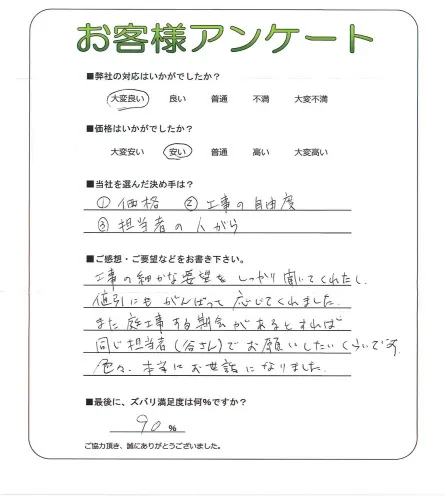 お客様アンケート
■弊社の対応はいかがでしたか？
大変良い 良い 普通 不満 大変不満
■価格はいかがでしたか？
大変安い 安い 普通 高い 大変高い
■当社を選んだ決め手は？
① 価格 ② 工事の自由度
③ 担当者の人がら
■ご感想・ご要望などをお書き下さい。
工事の細かな要望もしっかり聞いてくれたし、
値引にもがんばって応じてくれました。
また庭工事する機会があるとすれば
同じ担当者(谷さん)でお願いしたいくらいです。
色々、本当にお世話になりました。
■最後に、ズバリ満足度は何%ですか？
90 %
ご協力頂き、誠にありがとうございました。